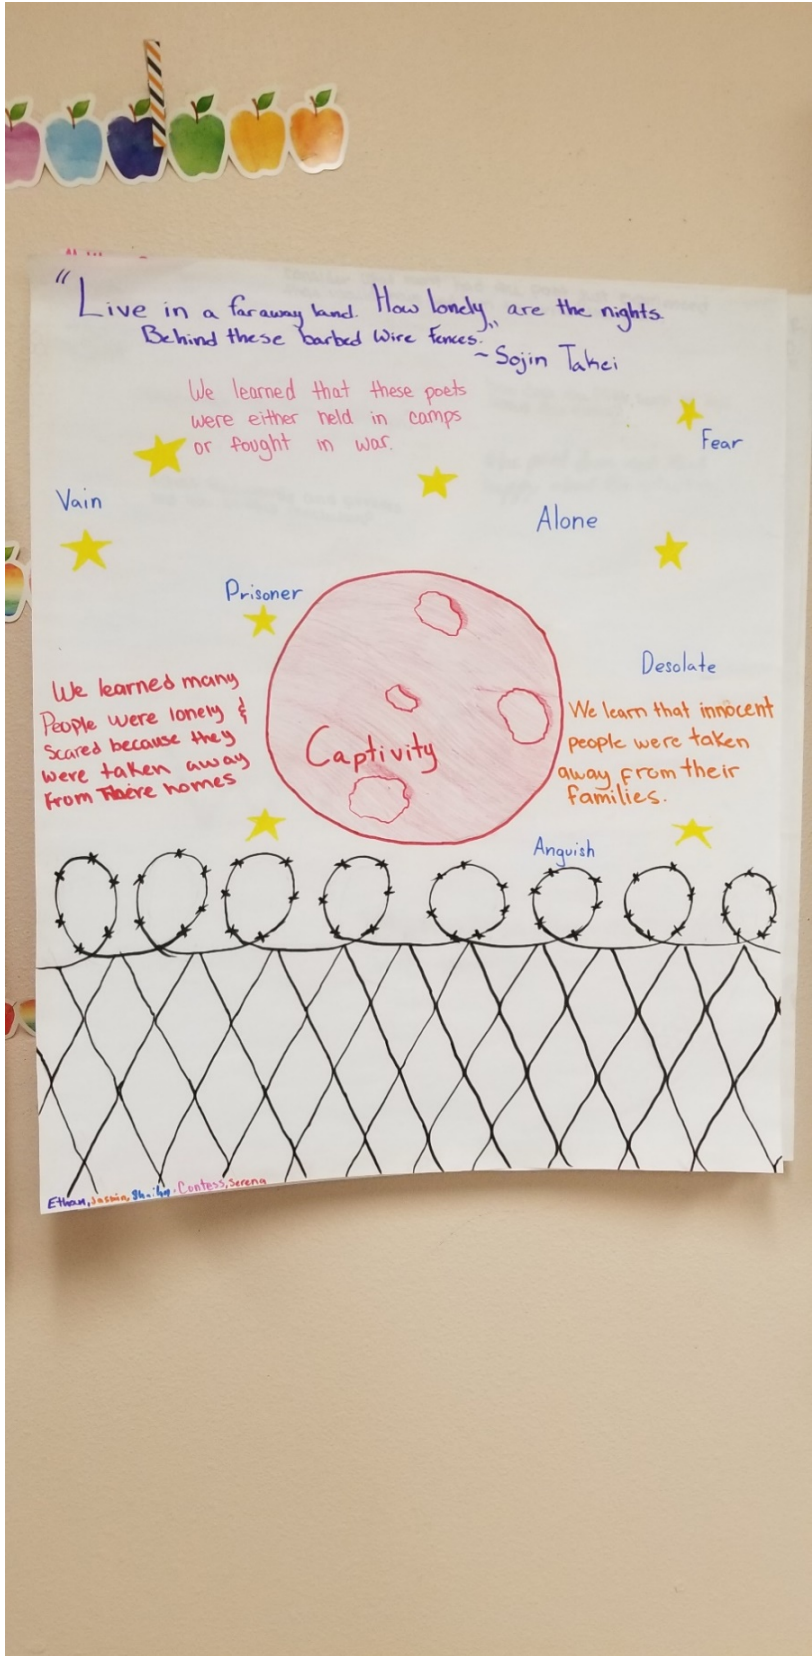 "Live in a faraway land. How lonely are the nights.
Behind these barbed wire fences."
~ Sojin Takei
We learned that these poets
were either held in camps
or fought in war.
Fear
Vain
Alone
Prisoner
Desolate
We learned many
People were lonely &
Scared because they
were taken away
From There homes
Captivity
We learn that innocent
people were taken
away from their
families.
Anguish
Ethan, Jasmin, Contess, Serena